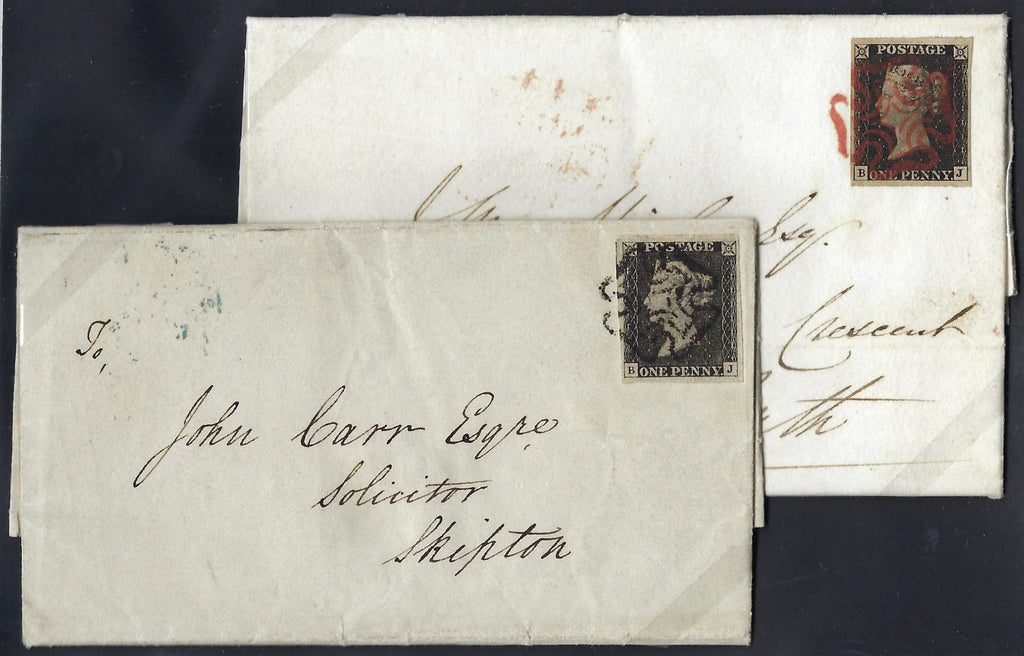 POSTAGE
B ONE PENNY. J
Esq.
Crescent
POSTAGE
B ONE PENNY. J
To,
John Carr Esqre
Solicitor
Skipton